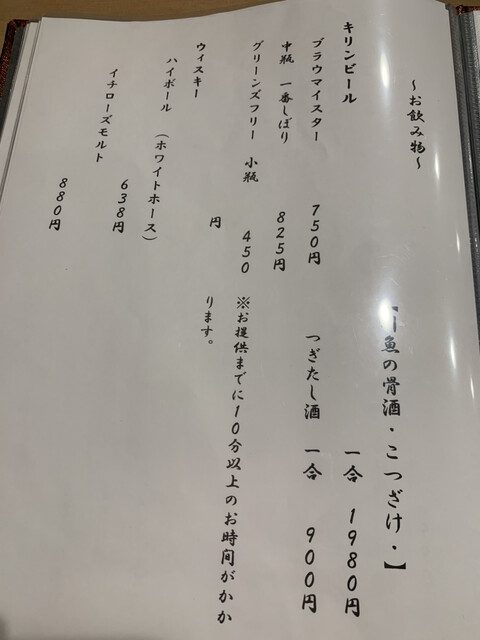 ～お飲み物～
キリンビール
ブラウマイスター 750円
中瓶 一番しぼり 825円
グリーンズフリー 小瓶 450
円
ウィスキー
ハイボール (ホワイトホース)
638円
イチローズモルト
880円
魚の骨酒・こつざけ・】
一合 1980円
つぎたし酒 一合 900円
※お提供までに10分以上のお時間がかか
ります。